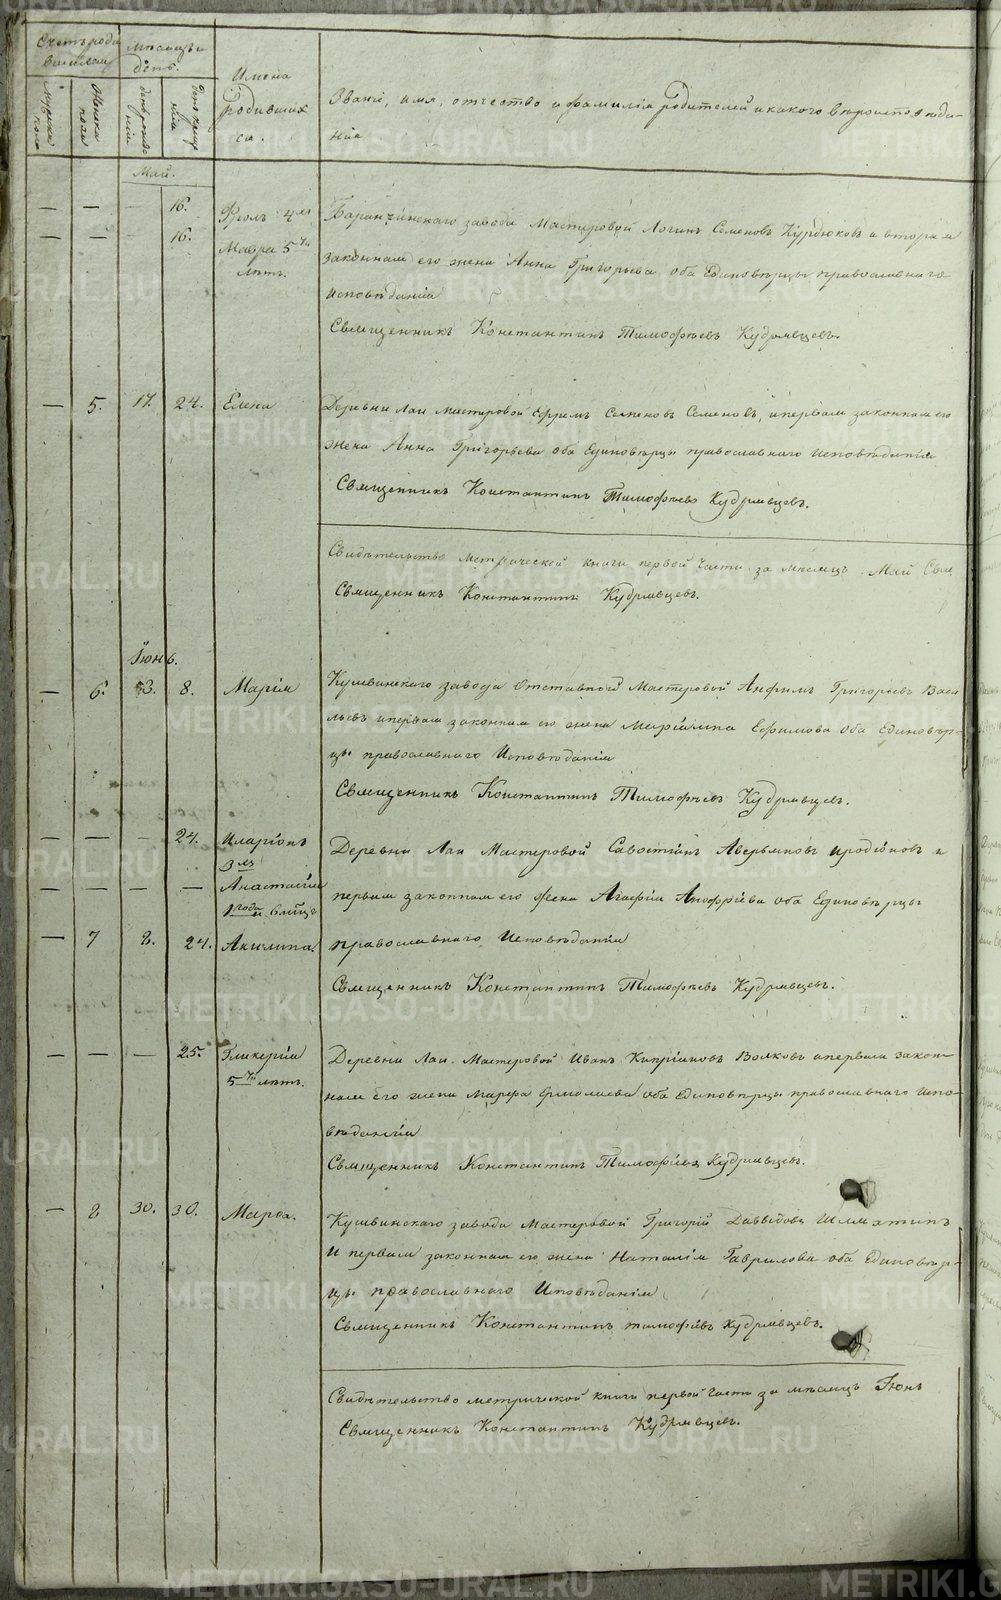 Счетъ родившихся
мѣсяцъ и день.
Имена родившихся.
Званіе, имя, отчество и фамилія родителей и какого вѣроисповѣданія
мужеска пола
женска пола
день рожденія
день крещенія
Май.
— — 16. Фролъ 4 лѣ Баранчинскаго завода Мастеровой Логинъ Семеновъ Курдюковъ и вторая
— — 16. Мавра 5ти лѣтъ. законная его жена Анна Григорьева оба Единовѣрцы православнаго
исповѣданія
Священникъ Константинъ Тимофѣевъ Кудрявцевъ.
— 5. 17. 24. Елена Деревни Лаи мастеровой Ефремъ Семеновъ Семеновъ, и первая законная его
жена Анна Григорьева оба Единовѣрцы православнаго исповѣданія
Священникъ Константинъ Тимофѣевъ Кудрявцевъ.
Свидѣтельство метрической книги первой части за мѣсяцъ Май Свящ
Священникъ Константинъ Кудрявцевъ.
Іюнь.
— 6. 3. 8. Марія Кушвинскаго завода Отставной Мастеровой Анфимъ Григорьевъ Васи
льевъ и первая законная его жена Маріамна Ефимова оба Единовѣр-
цы православнаго Исповѣданія
Священникъ Константинъ Тимофѣевъ Кудрявцевъ.
— — — 24. Иларіонъ 3 лѣ Деревни Лаи Мастеровой Савостіанъ Аверьяновъ Иродіоновъ и
— — — — Анастасія 1 года и 6 мѣсц первая законная его жена Агафія Анофріева оба Единовѣрцы
— 7 8. 24. Акилина. православнаго Исповѣданія
Священникъ Константинъ Тимофѣевъ Кудрявцевъ.
— — — 25. Гликерія 5ти лѣтъ. Деревни Лаи Мастеровой Иванъ Кипріяновъ Волковъ и первая закон-
ная его жена Марфа Ермолаева оба Единовѣрцы православнаго Испо-
вѣданія
Священникъ Константинъ Тимофѣевъ Кудрявцевъ.
— 8 30. 30. Марѳа. Кушвинскаго завода Мастеровой Григорій Давыдовъ Шляхтинъ
и первая законная его жена Наталія Гаврилова оба Единовѣр-
цы православнаго Исповѣданія
Священникъ Константинъ Тимофѣевъ Кудрявцевъ.
Свидѣтельство метрической книги первой части за мѣсяцъ Іюнь
Священникъ Константинъ Кудрявцевъ.
METRIKI.GASO-URAL.RU